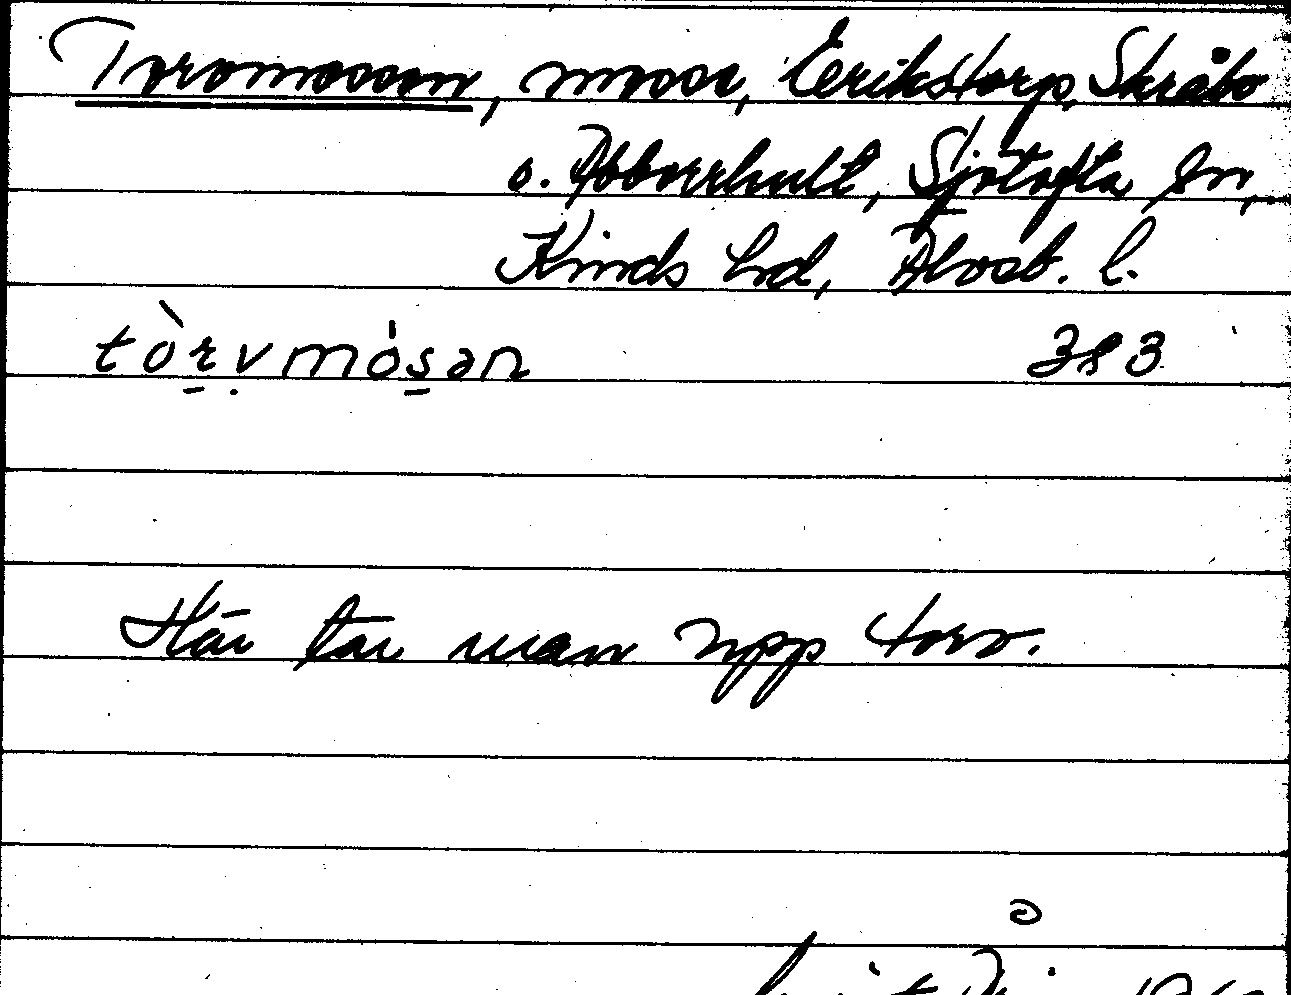 Torvmossen, mosse, Erikstorp, Skråbo
o. Abborrhult, Sjötofta sn,
Kinds hd, Älvsb. l.
tòrvmósən 383
Här tar man upp torv.